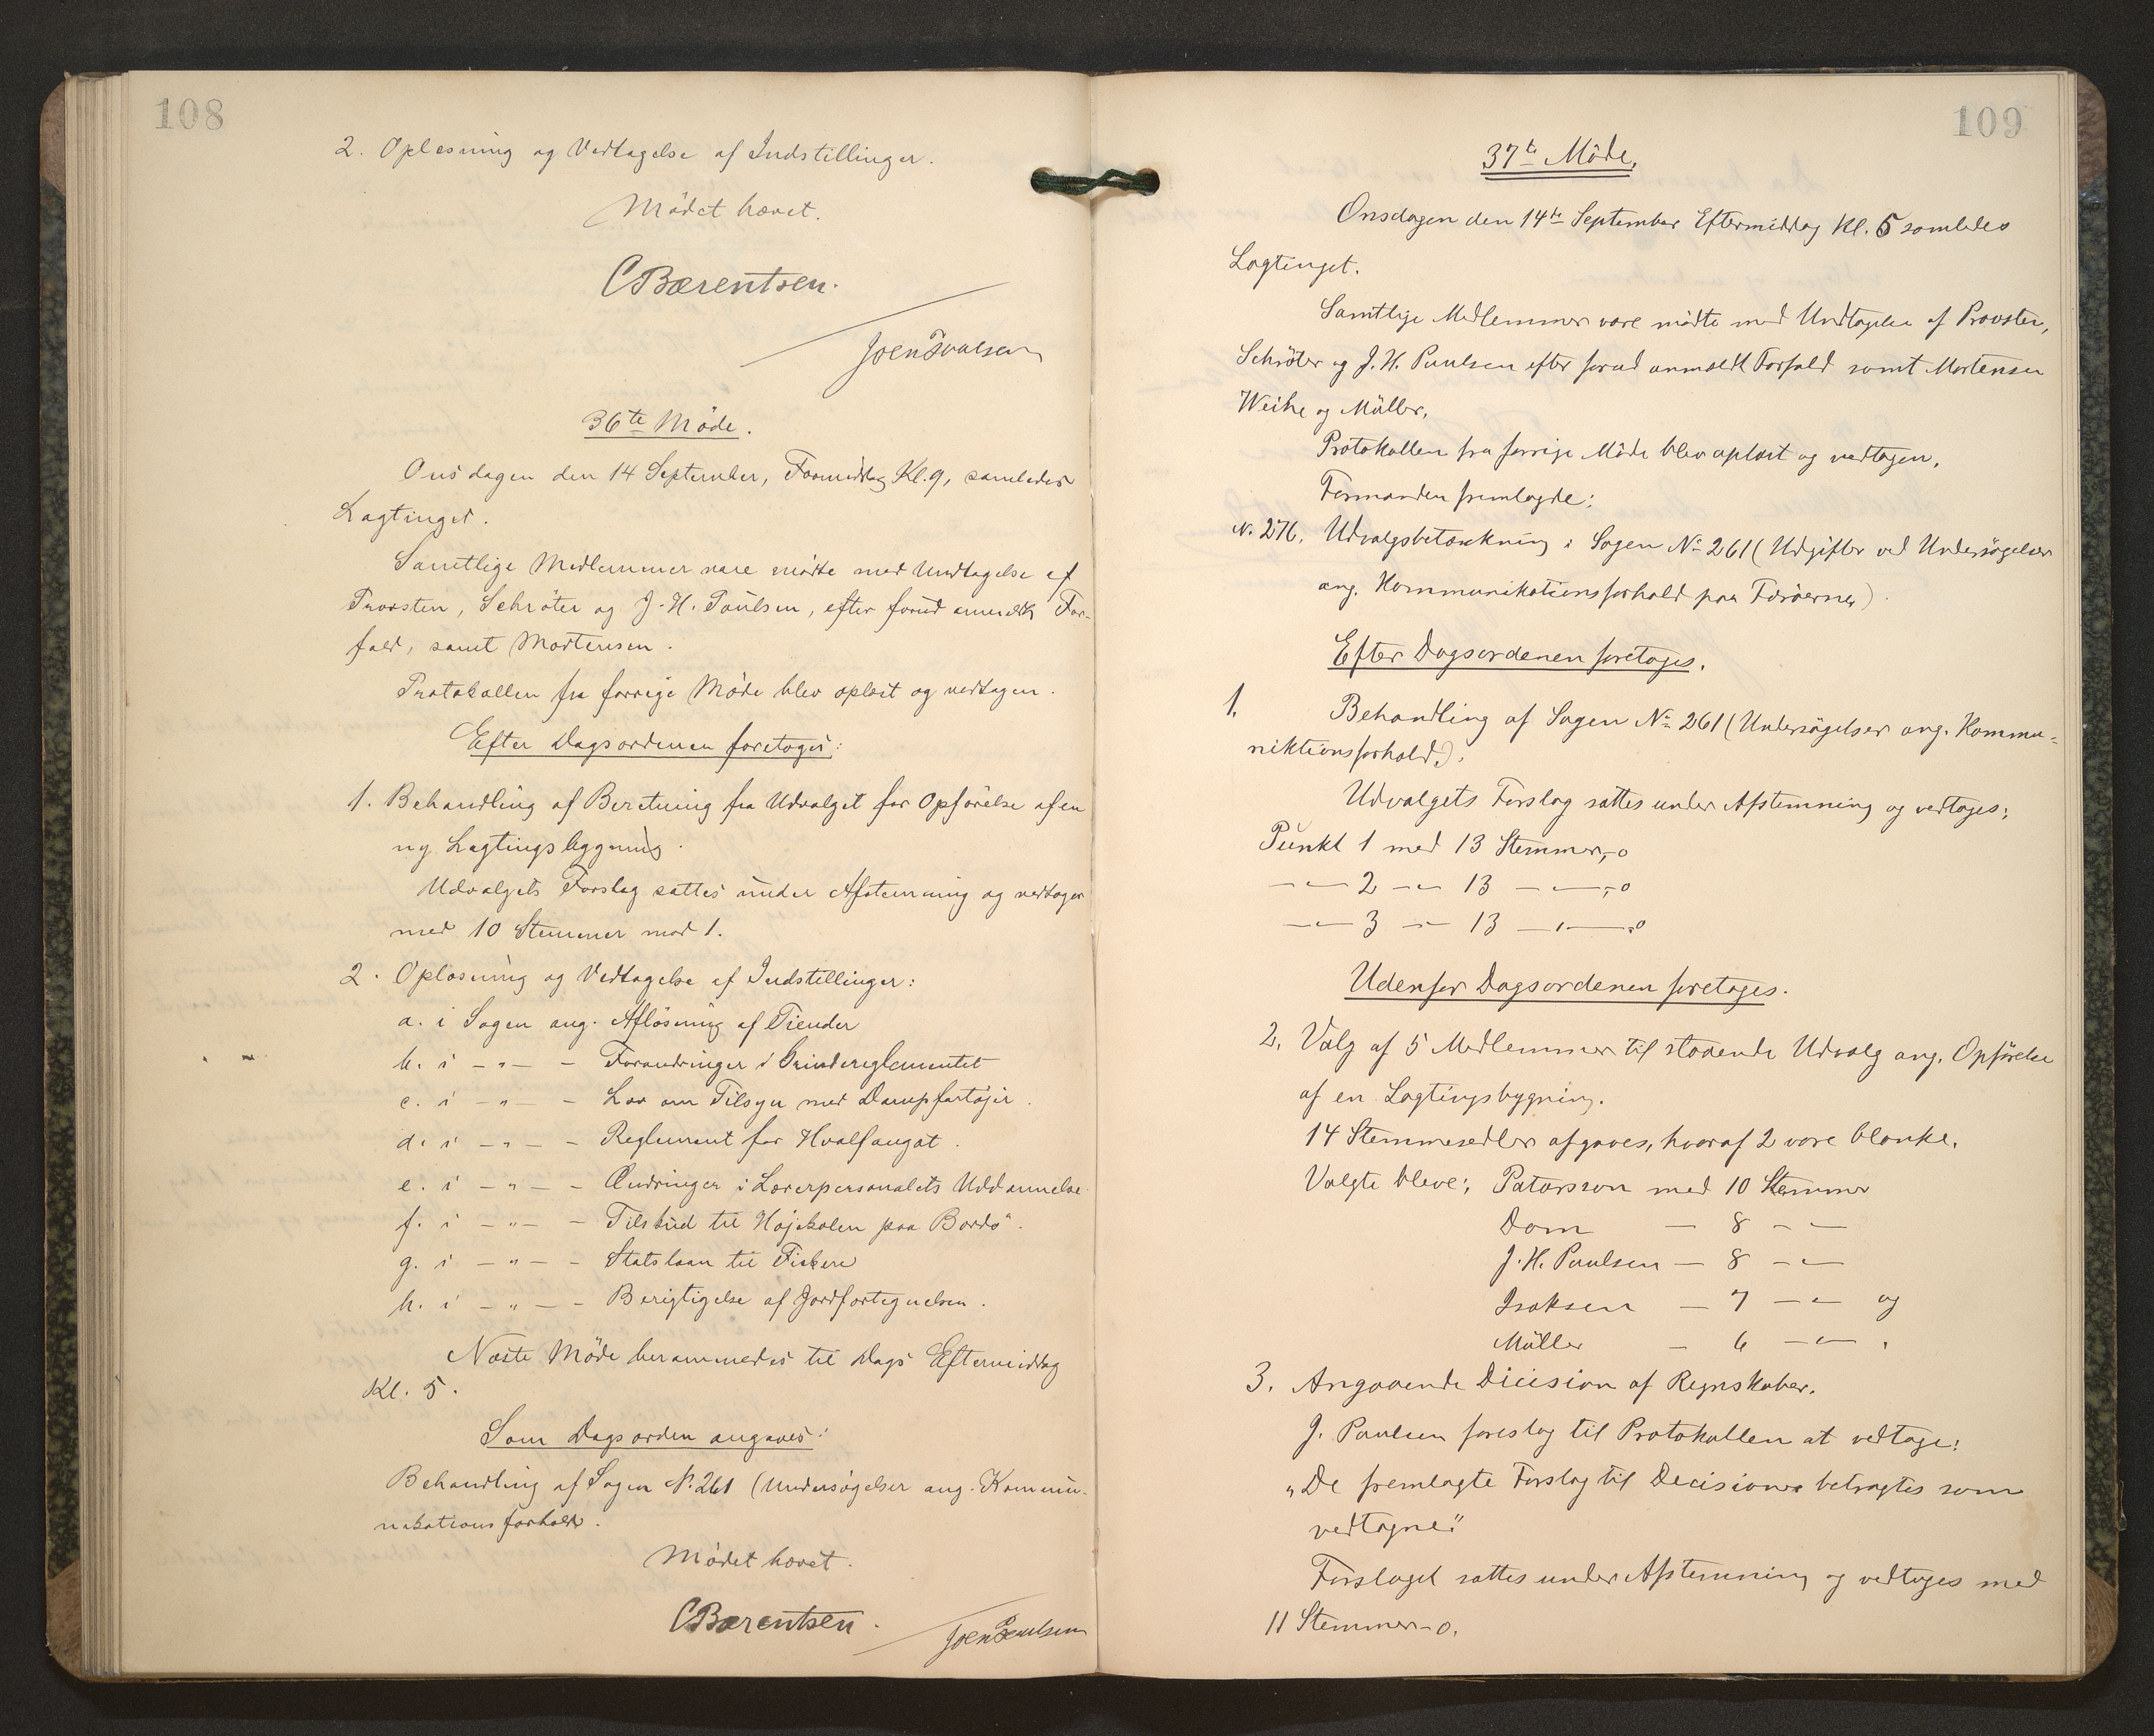 108
2. Oplæsning og Vedtagelse af Indstillinger.
Mödet hævet.
CBærentsen.
Joen Poulsen
36te Möde.
Onsdagen den 14 September, Formiddag Kl. 9, samledes
Lagtinget.
Samtlige Medlemmer vare mödte med Undtagelse af
Provsten, Schröter og J. H. Poulsen, efter forud anmeldt For-
fald, samt Mortensen.
Protokollen fra forrige Möde blev oplæst og vedtagen.
Efter Dagsordenen foretoges:
1. Behandling af Beretning fra Udvalget for Opförelse af en
ny Lagtingsbygning.
Udvalgets Forslag sattes under Afstemning og vedtoges
med 10 Stemmer mod 1.
2. Oplæsning og Vedtagelse af Indstillinger:
a. i Sagen ang. Aflösning af Tiender
b. i -"- - Forandringer i Grindereglementet
c. i -"- - Lov om Tilsyn med Dampfartöjer.
d. i -"- - Reglement for Hvalfangst.
e. i -"- - Ændringer i Lærerpersonalets Uddannelse.
f. i -"- - Tilskud til Höjskolen paa Bordö.
g. i -"- - Statslaan til Fiskere
h. i -"- - Berigtigelse af Jordfortegnelsen.
Næste Möde berammedes til Dags Eftermiddag
Kl. 5.
Som Dagsorden angaves:
Behandling af Sagen N. 261 (Undersögelser ang. Kommu-
nikationsforhold.
Mödet hævet.
CBærentsen.
Joen Poulsen
109
37te Möde.
Onsdagen den 14te September Eftermiddag Kl. 5 samledes
Lagtinget.
Samtlige Medlemmer vare mödte med Undtagelse af Provsten,
Schröter og J. H. Poulsen efter forud anmeldt Forfald samt Mortensen
Weihe og Müller.
Protokollen fra forrige Möde blev oplæst og vedtagen.
Formanden fremlagde:
N. 276. Udvalgsbetænkning i Sagen No 261 (Udgifter ved Undersögelser
ang. Kommunikationsforhold paa Færöerne).
Efter Dagsordenen foretoges.
1. Behandling af Sagen No 261 (Undersögelser ang. Kommu=
niktionsforhold).
Udvalgets Forslag sattes under Afstemning og vedtoges:
Punkt 1 med 13 Stemmer, - 0
-"- 2 -"- 13 -"-, - 0
-"- 3 -"- 13 -"- - 0
Udenfor Dagsordenen foretoges.
2. Valg af 5 Medlemmer til staaende Udvalg ang. Opförelse
af en Lagtingsbygning.
14 Stemmesedler afgaves, hvoraf 2 vare blanke.
Valgte bleve: Patursson med 10 Stemmer
Dam - 8 -"-
J. H. Poulsen - 8 -"-
Isaksen - 7 -"- og
Müller - 6 -"-.
3. Angaaende Dicision af Regnskaber.
J. Poulsen foreslog til Protokollen at vedtage:
"De fremlagte Forslag til Decisioner betragtes som
vedtagne."
Forslaget sattes under Afstemning og vedtoges med
11 Stemmer - 0.